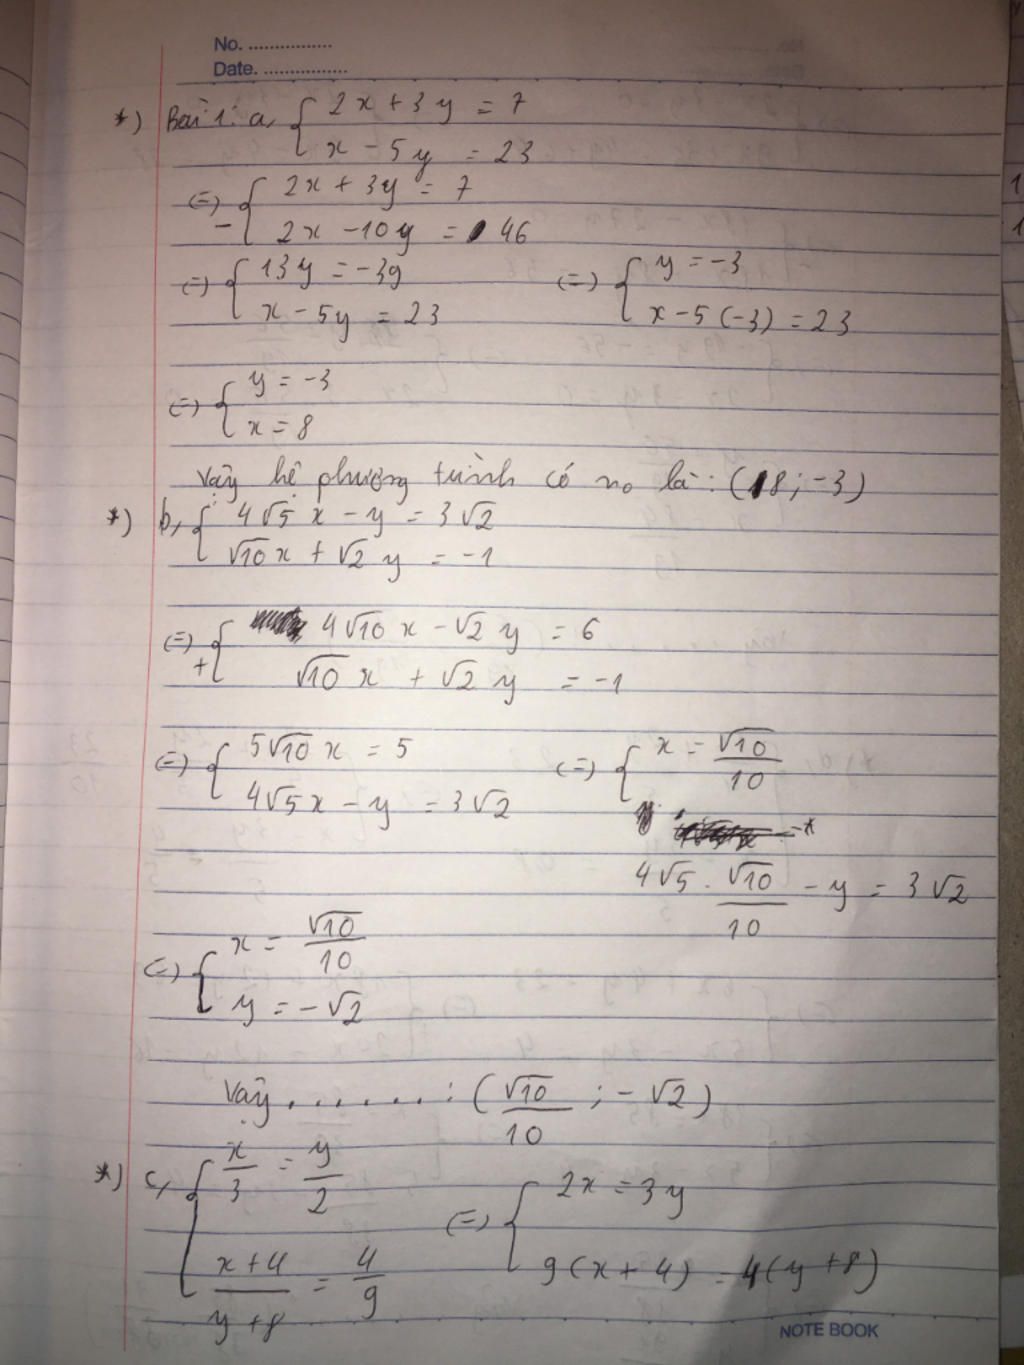 No. ................
Date. ................
*) Bài 1: a, { 2x + 3y = 7
x - 5y = 23
(=) { 2x + 3y = 7
- 2x - 10y = 46
(=) { 13y = -39 (=) { y = -3
x - 5y = 23 x - 5(-3) = 23
(=) { y = -3
x = 8
Vậy hệ phương trình có no là: (18; -3)
*) b, { 4√5 x - y = 3√2
√10 x + √2 y = -1
(=) { 4√10 x - √2 y = 6
+ √10 x + √2 y = -1
(=) { 5√10 x = 5 (=) { x = √10/10
4√5x - y = 3√2
4√5 . √10/10 - y = 3√2
(=) { x = √10/10
y = -√2
Vậy . . . . . . : (√10/10 ; -√2)
*) c, { x/3 = y/2 (=) { 2x = 3y
x+4/y+8 = 4/9 9(x+4) = 4(y+8)
NOTE BOOK